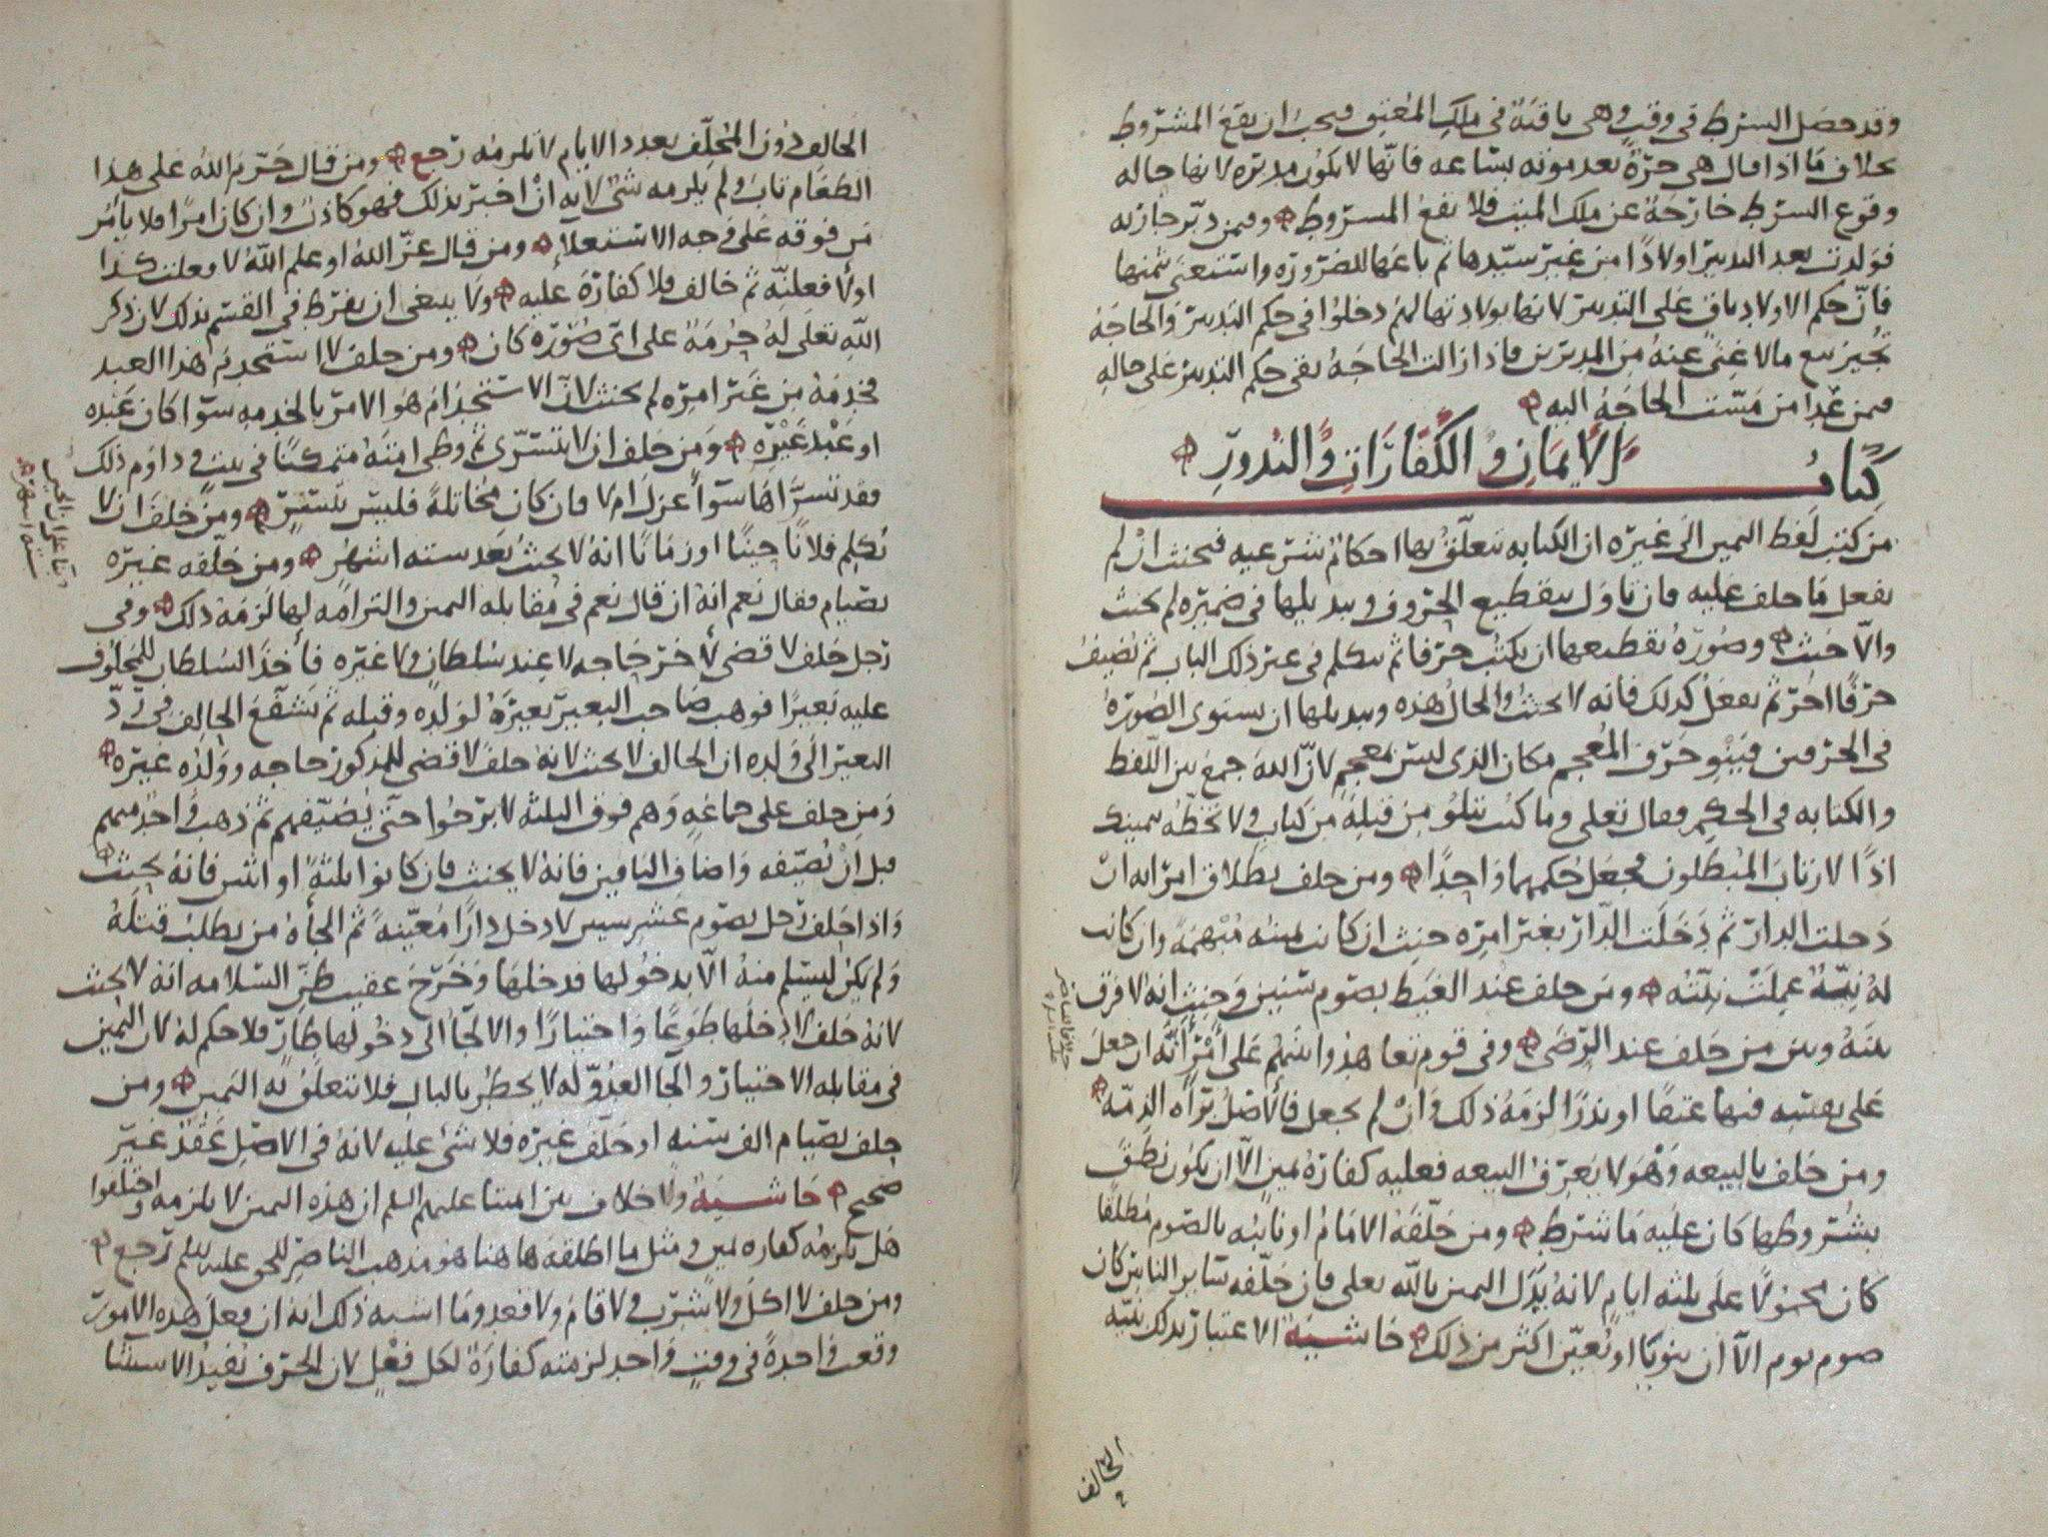 وقد حصل الشرط في وقت وهي باقية في ملك المعتق فيجب ان يقع المشروط
بخلاف ما اذا قال هي حرة بعد موته بساعه فانها لا يكون مدبره لانها حاله
وقوع الشرط خارجة عن ملك الميت فلا يقع المشروط وفيمن دبر جاريه
فولدت بعد التدبير اولادا من غير سيدها ثم باعها للضروره واستغنى بثمنها
فان حكم الاولاد باق على التدبير لانها بولادتها لهم دخلوا في حكم التدبير والحاجة
تجيز بيع ما لا غنى عنه من المدبرين فاذا زالت الحاجة بقي حكم التدبير على حاله
فمن عدا من مست الحاجة اليه
كتاب الأيمان والكفارات والنذور
من كتب لفظ اليمين الى غيره ان الكتابه تتعلق بها احكام شرعيه فيحنث ان لم
يفعل ما حلف عليه فان تاول بتقطيع الحروف وتبديلها في ضميره لم يحنث
والا حنث وصورة تقطيعها ان يكتب حرفا ثم يتكلم في غير ذلك الباب ثم يضيف
حرفا اخر ثم يفعل كذلك فانه لا يحنث والحال هذه وتبديلها ان يستوي الصورة
في الحرفين فينوي حرف المعجم مكان الذي ليس بمعجم لان الله جمع بين اللفظ
والكتابه في الحكم فقال تعلى وما كنت تتلو من قبله من كتاب ولا تخطه بيمينك
اذا لارتاب المبطلون فجعل حكمهما واحدا ومن حلف بطلاق امراته ان
دخلت الدار ثم دخلت الدار بغير امره حنث ان كانت يمينه مبهمة وان كانت
له نية عملت نيته ومن حلف عند الغيظ بصوم سنين وحنث انه لا فرق
بينه وبين من حلف عند الرضى وفي قوم تعاهدوا
على نفسه فيها عتقا او نذرا لزمه ذلك وان لم يجعل فالاصل براه الذمه
ومن حلف بالبيعه وهو لا يعرف البيعه فعليه كفارة يمين الا ان يكون نطق
بشروطها كان عليه ما شرط ومن حلفه الامام او نائبه بالصوم مطلقا
كان محمولا على ثلثه ايام لانه بدل اليمين بالله تعلى فان حلفه سائر الناس كان
صوم يوم الا ان ينويا او يعين اكثر من ذلك حاشية الاعتبار بذلك بنيه
الحالف
الحالف دون المحلف بعدد الايام لا يلزمه رجع ومن قال حرم الله على هذا
الطعام تاب ولم يلزمه شي لانه ان اخبر بذلك فهو كاذب وان كان امرا فلا يأمر
من فوقه على وجه الاستعلا ومن قال عز الله او علم الله لا فعلت كذا
او لأفعلنه ثم خالف فلا كفارة عليه ولا ينبغي ان يفرط في القسم بذلك لان ذكر
الله تعلى له حرمة على اي صورة كان ومن حلف لا استخدم هذا العبد
فخدمه من غير امره لم يحنث لان الاستخدام هو الامر بالخدمه سوا كان عبده
او عبد غيره ومن حلف ان لا يتسرى ثم وطي امته متمكنا في بيت ودام ذلك
فقد تسراها سوا عزل ام لا فان كان مخاتلة فليس بتسر ومن حلف ان لا
يكلم فلانا حينا او زمانا انه لا يحنث بعد سته اشهر ومن حلفه غيره
بصيام فقال نعم انه ان قال نعم في مقابله اليمين والتزامه لها لزمه ذلك وفي
رجل حلف لا قضى لأخر حاجه لا عند سلطان ولا غيره فأخذ السلطان للمحلوف
عليه بعيرا فوهب صاحب البعير بعيره لولده وقبله ثم تشفع الحالف في رد
البعير الى ولده ان الحالف لا يحنث لانه حلف لا قضى للمذكور حاجه وولده غيره
ومن حلف على جماعه وهم فوق الثلثه لا برحوا حتى يضيفهم ثم ذهب واحد منهم
قبل ان يضيفه واضاف الباقين فانه لا يحنث فان كانوا ثلثة او اثنين فانه يحنث
واذا حلف رجل بصوم عشر سنين لا دخل دارا معينة ثم الجأه من يطلب قتله
ولم يكن ليسلم منه الا بدخولها فدخلها وخرج عقيب ظن السلامه انه لا يحنث
لانه حلف لا دخلها طوعا واختيارا والالجأ الى دخولها طار فلا حكم له لان اليمين
في مقابله الاختيار والجا العدو له لا يخطر بالبال فلا تتعلق به اليمين ومن
حلف بصيام الف سنه او حلف غيره فلا شي عليه لانه في الاصل عقد غير
صحيح حاشية ولا خلاف بين ائمتنا عليهم السلم ان هذه اليمين لا يلزمه واختلفوا
هل يلزمه كفاره يمين ومثل ما اطلقه هاهنا هو مذهب الناصر للحق عليه السلم رجع
ومن حلف لا اكل ولا شرب ولا قام ولا قعد وما اشبه ذلك انه ان فعل هذه الامور
وقعت واحدة في وقت واحد لزمته كفارة لكل فعل لان الحرف يفيد الاستثنا